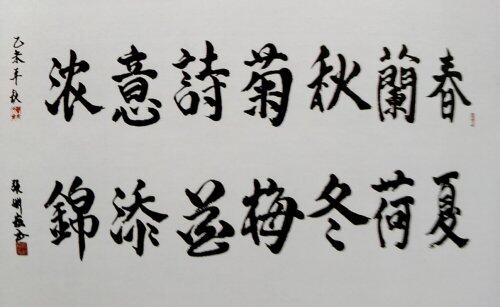 春蘭秋菊詩意浓
夏荷冬梅益添錦
乙未年秋
張